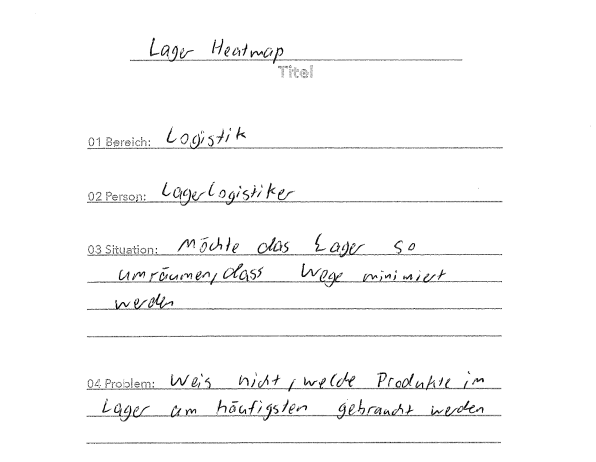 Lager Heatmap
Titel
01 Bereich: Logistik
02 Person: Lagerlogistiker
03 Situation: Möchte das Lager so
umräumen, dass Wege minimiert
werden
04 Problem: Weis nicht, welche Produkte im
Lager am häufigsten gebraucht werden